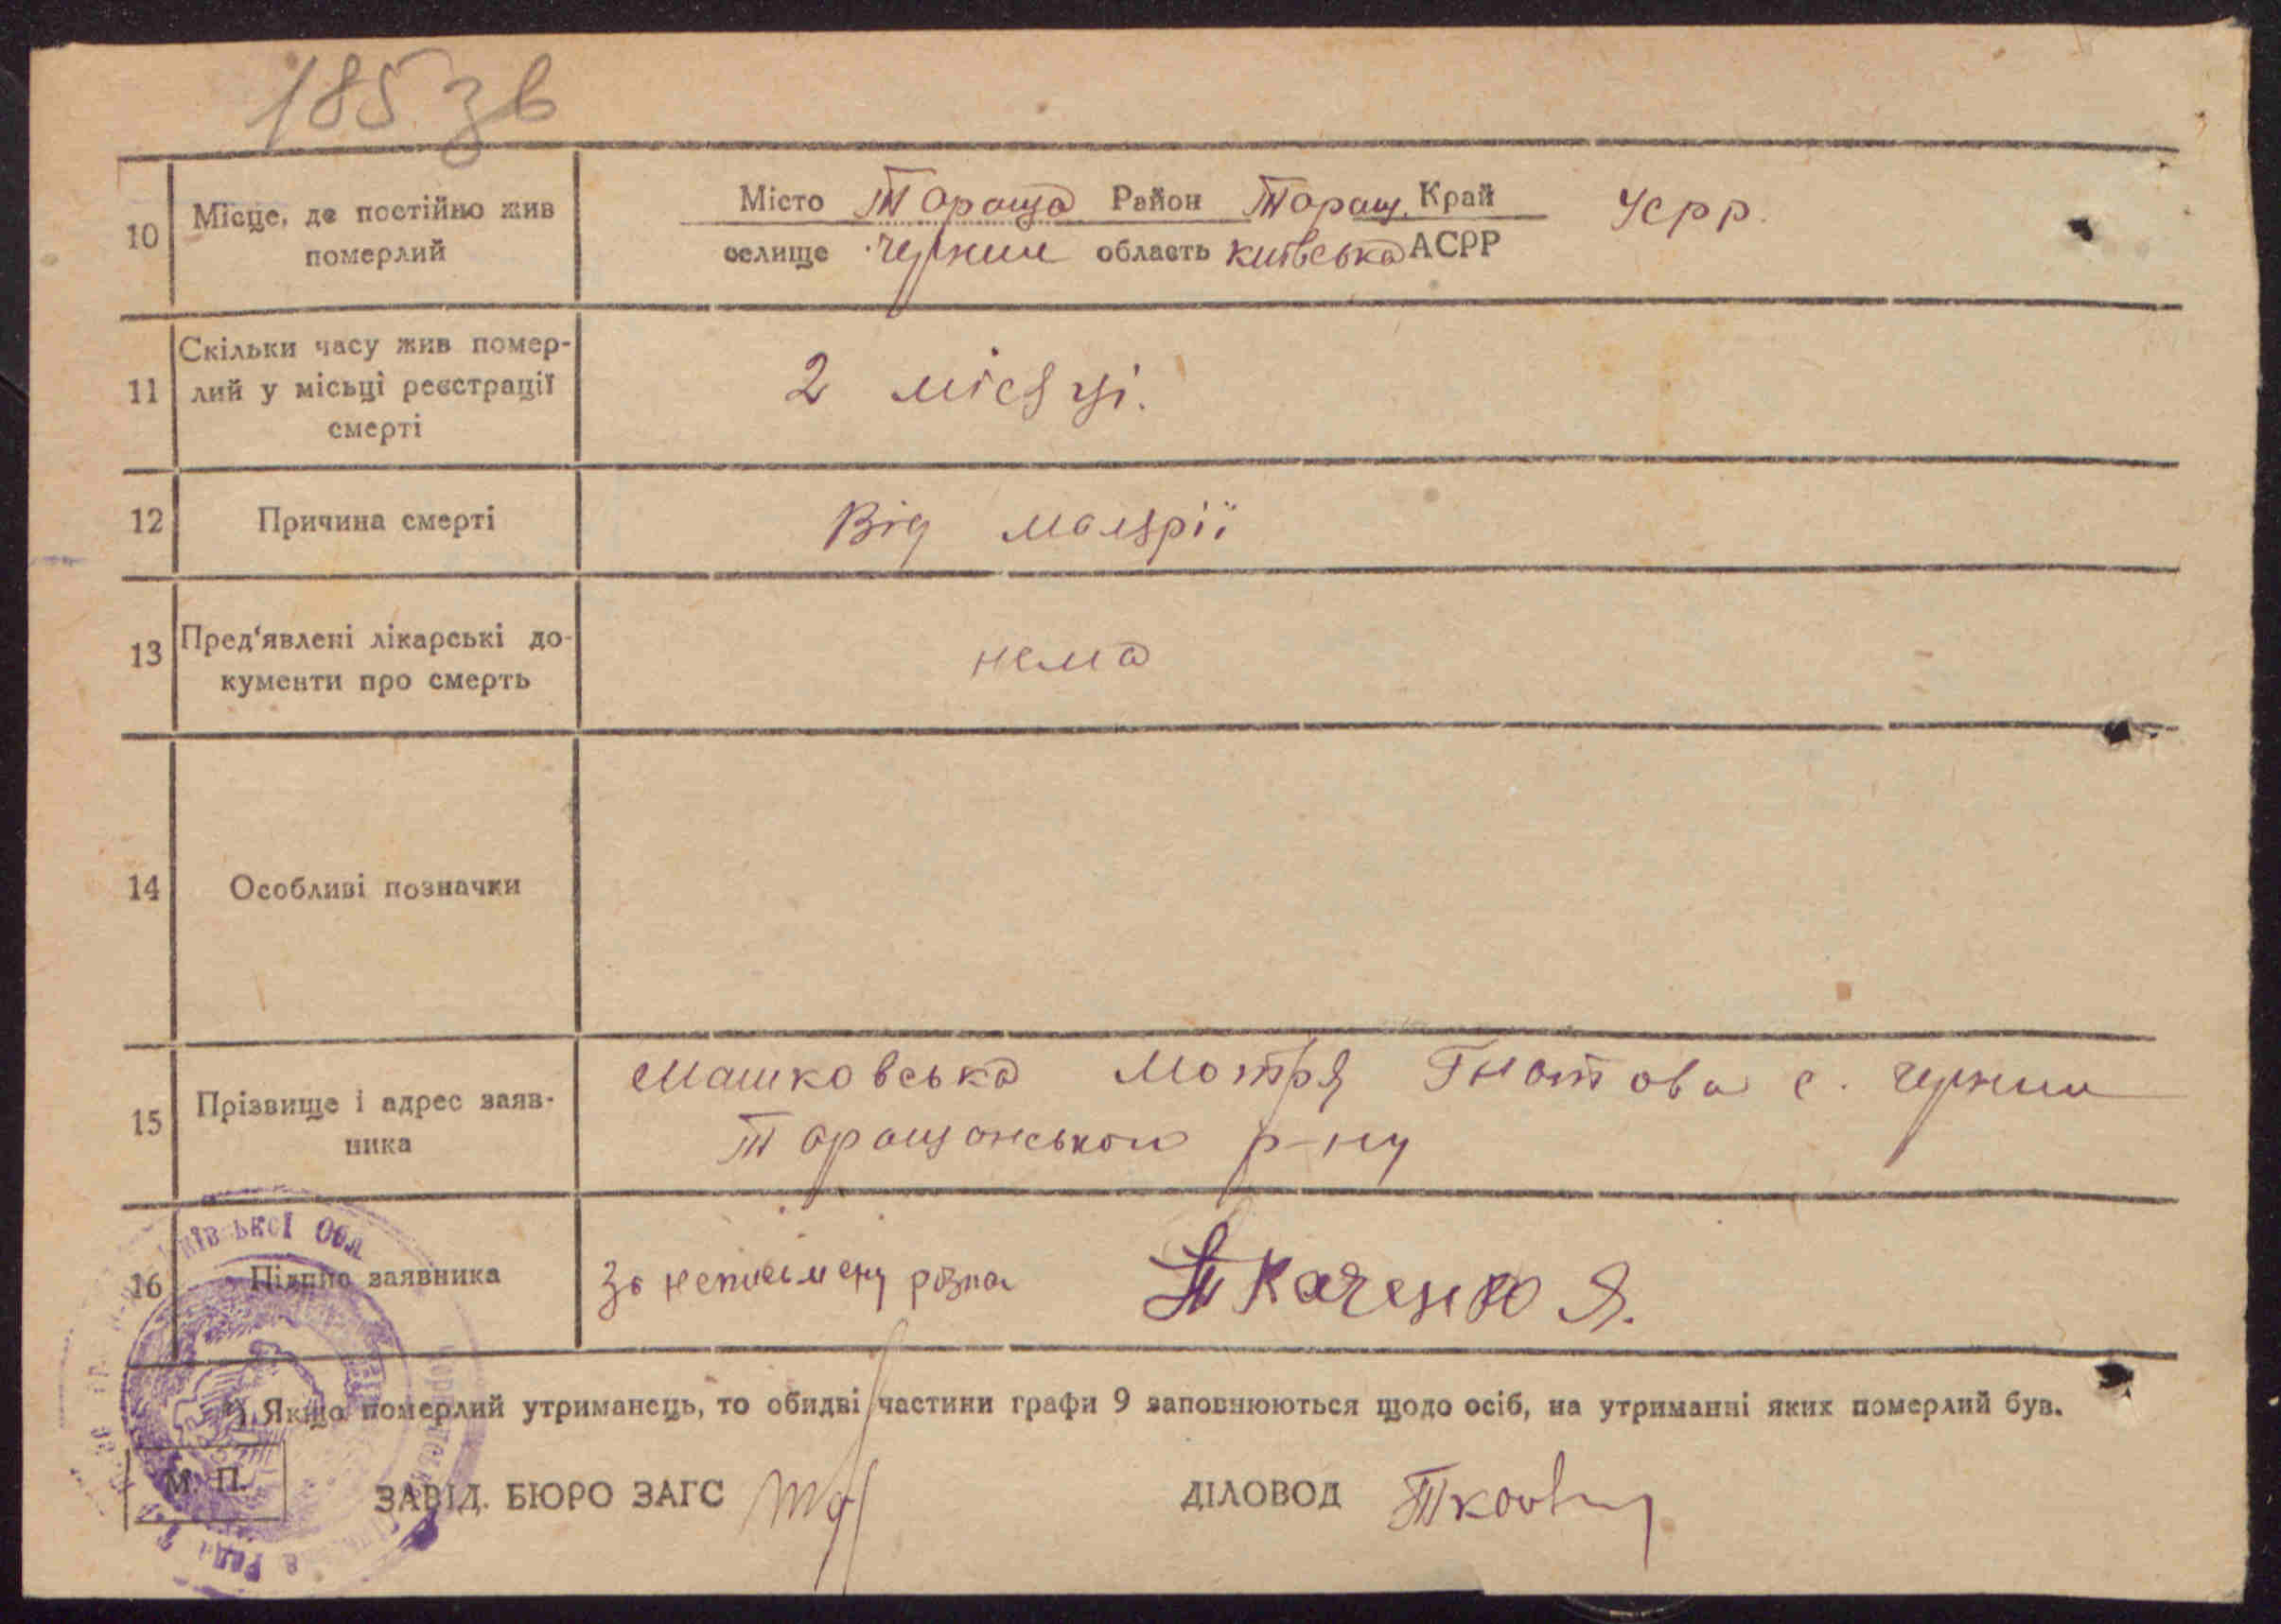 185 зв
10 Місце, де постійно жив померлий
Місто Тараща Район Таращ. Край Усрр.
селище Чернин область київська АСРР
11 Скільки часу жив помер-
лий у місьці реєстрації
смерті
2 місяці.
12 Причина смерті Від малярії
13 Пред'явлені лікарські до-
кументи про смерть
нема
14 Особливі позначки
15 Прізвище і адрес заяв-
ника
Машковська Мотря Гнатова с. Чернин
Таращанського р-ну
16 Підпис заявника За неписьмену розпис Ткаченко Я.
*) Якщо померлий утриманець, то обидві частини графи 9 заповнюються щодо осіб, на утриманні яких померлий був.
М. П. ЗАВІД. БЮРО ЗАГС ДІЛОВОД